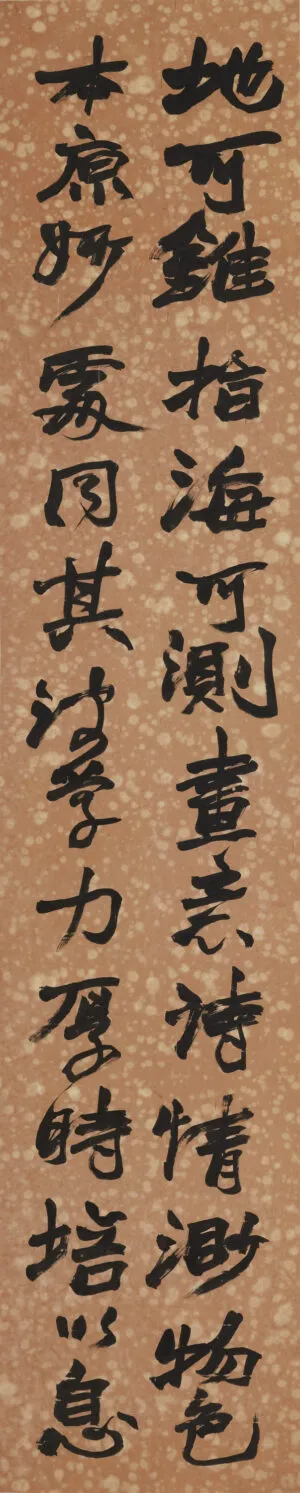 地可錐指海可測畫意詩情渺物色
本原妙處同其波學力厚時培以息